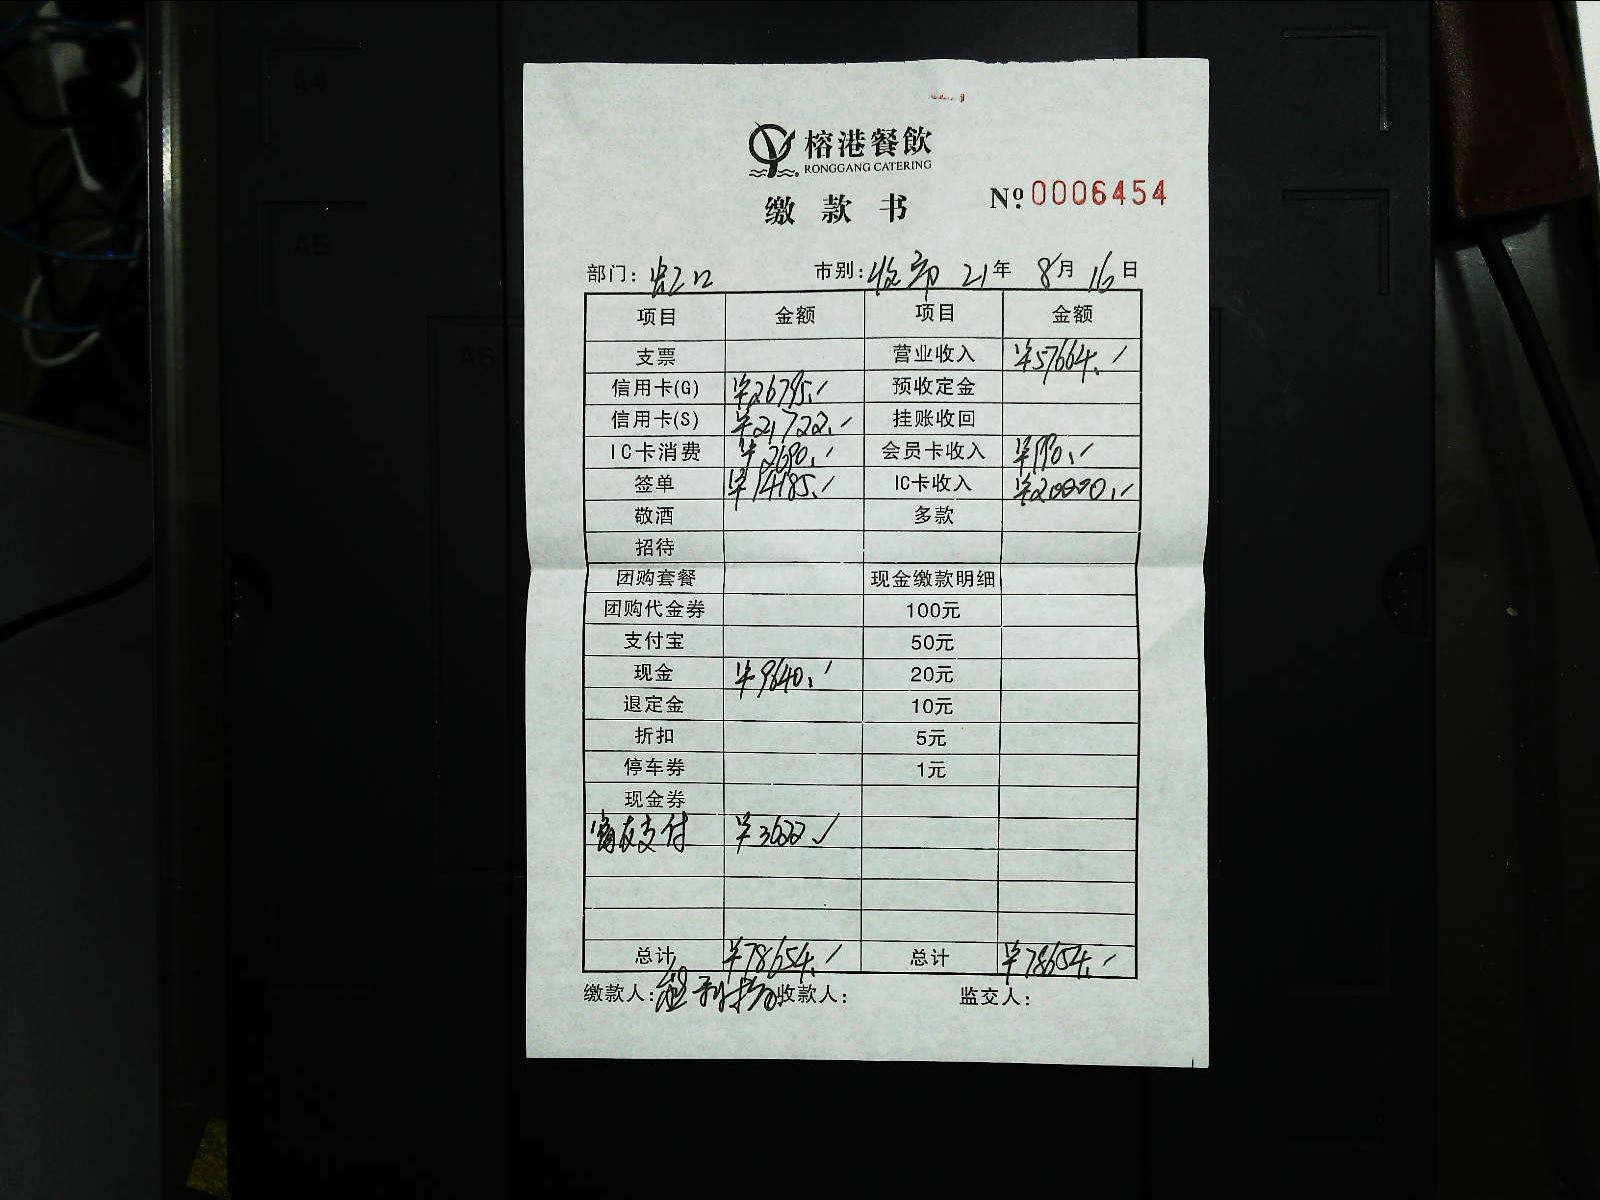 A4
A5
A6
榕港餐飲
RONGGANG CATERING
缴款书 № 0006454
部门: 虹口 市别: 收市 21年 8月 16日
项目 金额 项目 金额
支票 营业收入 ¥57664.-
信用卡(G) ¥26795.- 预收定金
信用卡(S) ¥21722.- 挂账收回
IC卡消费 ¥2690.- 会员卡收入 ¥990.-
签单 ¥14185.- IC卡收入 ¥20000.-
敬酒 多款
招待
团购套餐 现金缴款明细
团购代金券 100元
支付宝 50元
现金 ¥9640.- 20元
退定金 10元
折扣 5元
停车券 1元
现金券
支付 ¥3622.-
总计 ¥78654.- 总计 ¥78654.-
缴款人: 收款人: 监交人: